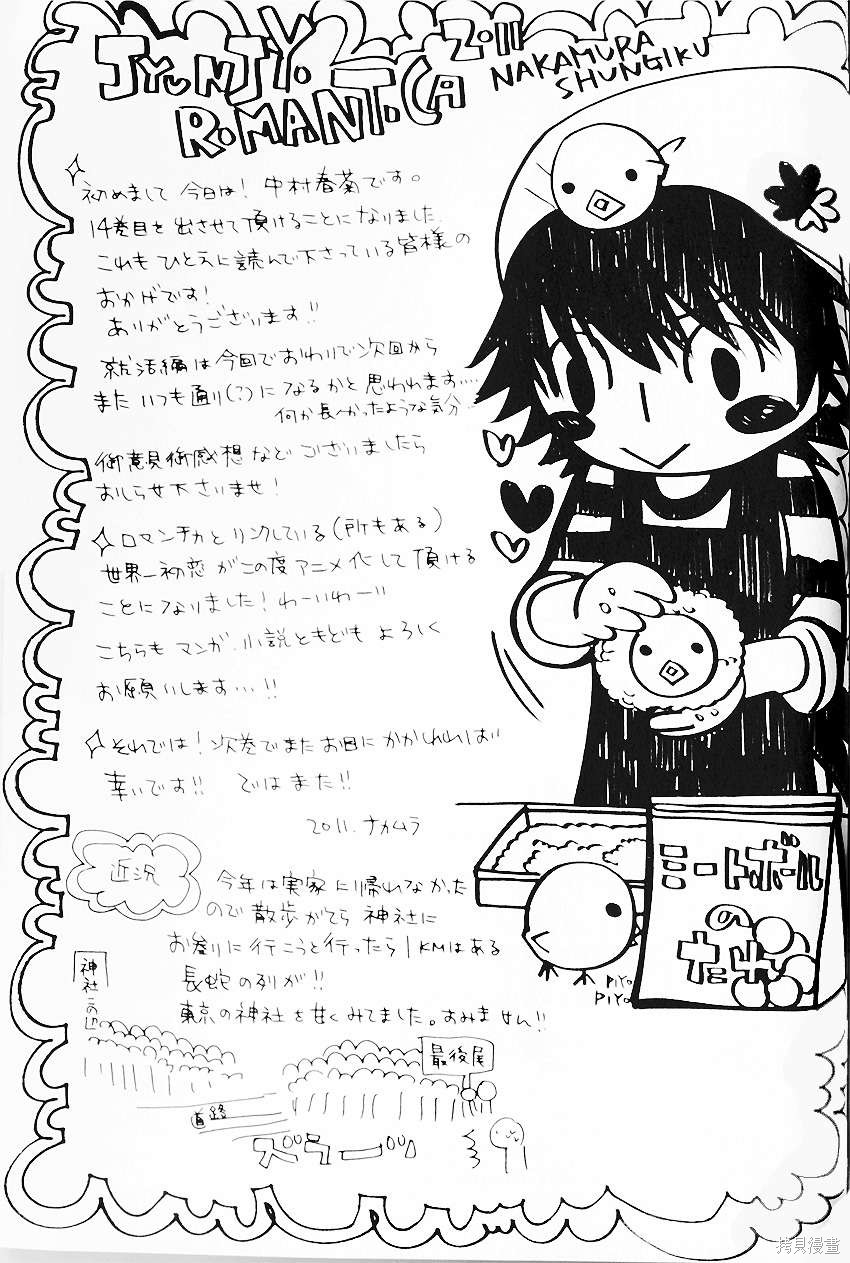 JYUNJYO
ROMANTICA
2011
NAKAMURA
SHUNGIKU
初めまして 今日は! 中村春菊です。
14巻目を出させて頂けることになりました。
これも ひとえに読んで下さっている皆様の
おかげです!
ありがとうございます!!
就活編は今回でおわりで次回から
また いつも通り(?)になるかと思われます....
何か長〜かったような気分...
御意見御感想などございましたら
おしらせ下さいませ!
ロマンチカとリンクしている(所もある)
世界一初恋がこの度アニメ化して頂ける
ことになりました! わーいわーい
こちらもマンガ、小説ともども よろしく
お願いします...!!
それでは! 次巻でまたお目にかかれれば
幸いです!! ではまた!!
2011. ナカムラ
近況
今年は実家に帰れなかった
ので散歩がてら 神社に
お参りに行こうと行ったら 1KMはある
長蛇の列が!!
東京の神社を甘くみてました。すみません!!
神社
最後尾
道路
ズラーッ
ミートボール
の
たね
PIYO
PIYO
拷貝漫畫